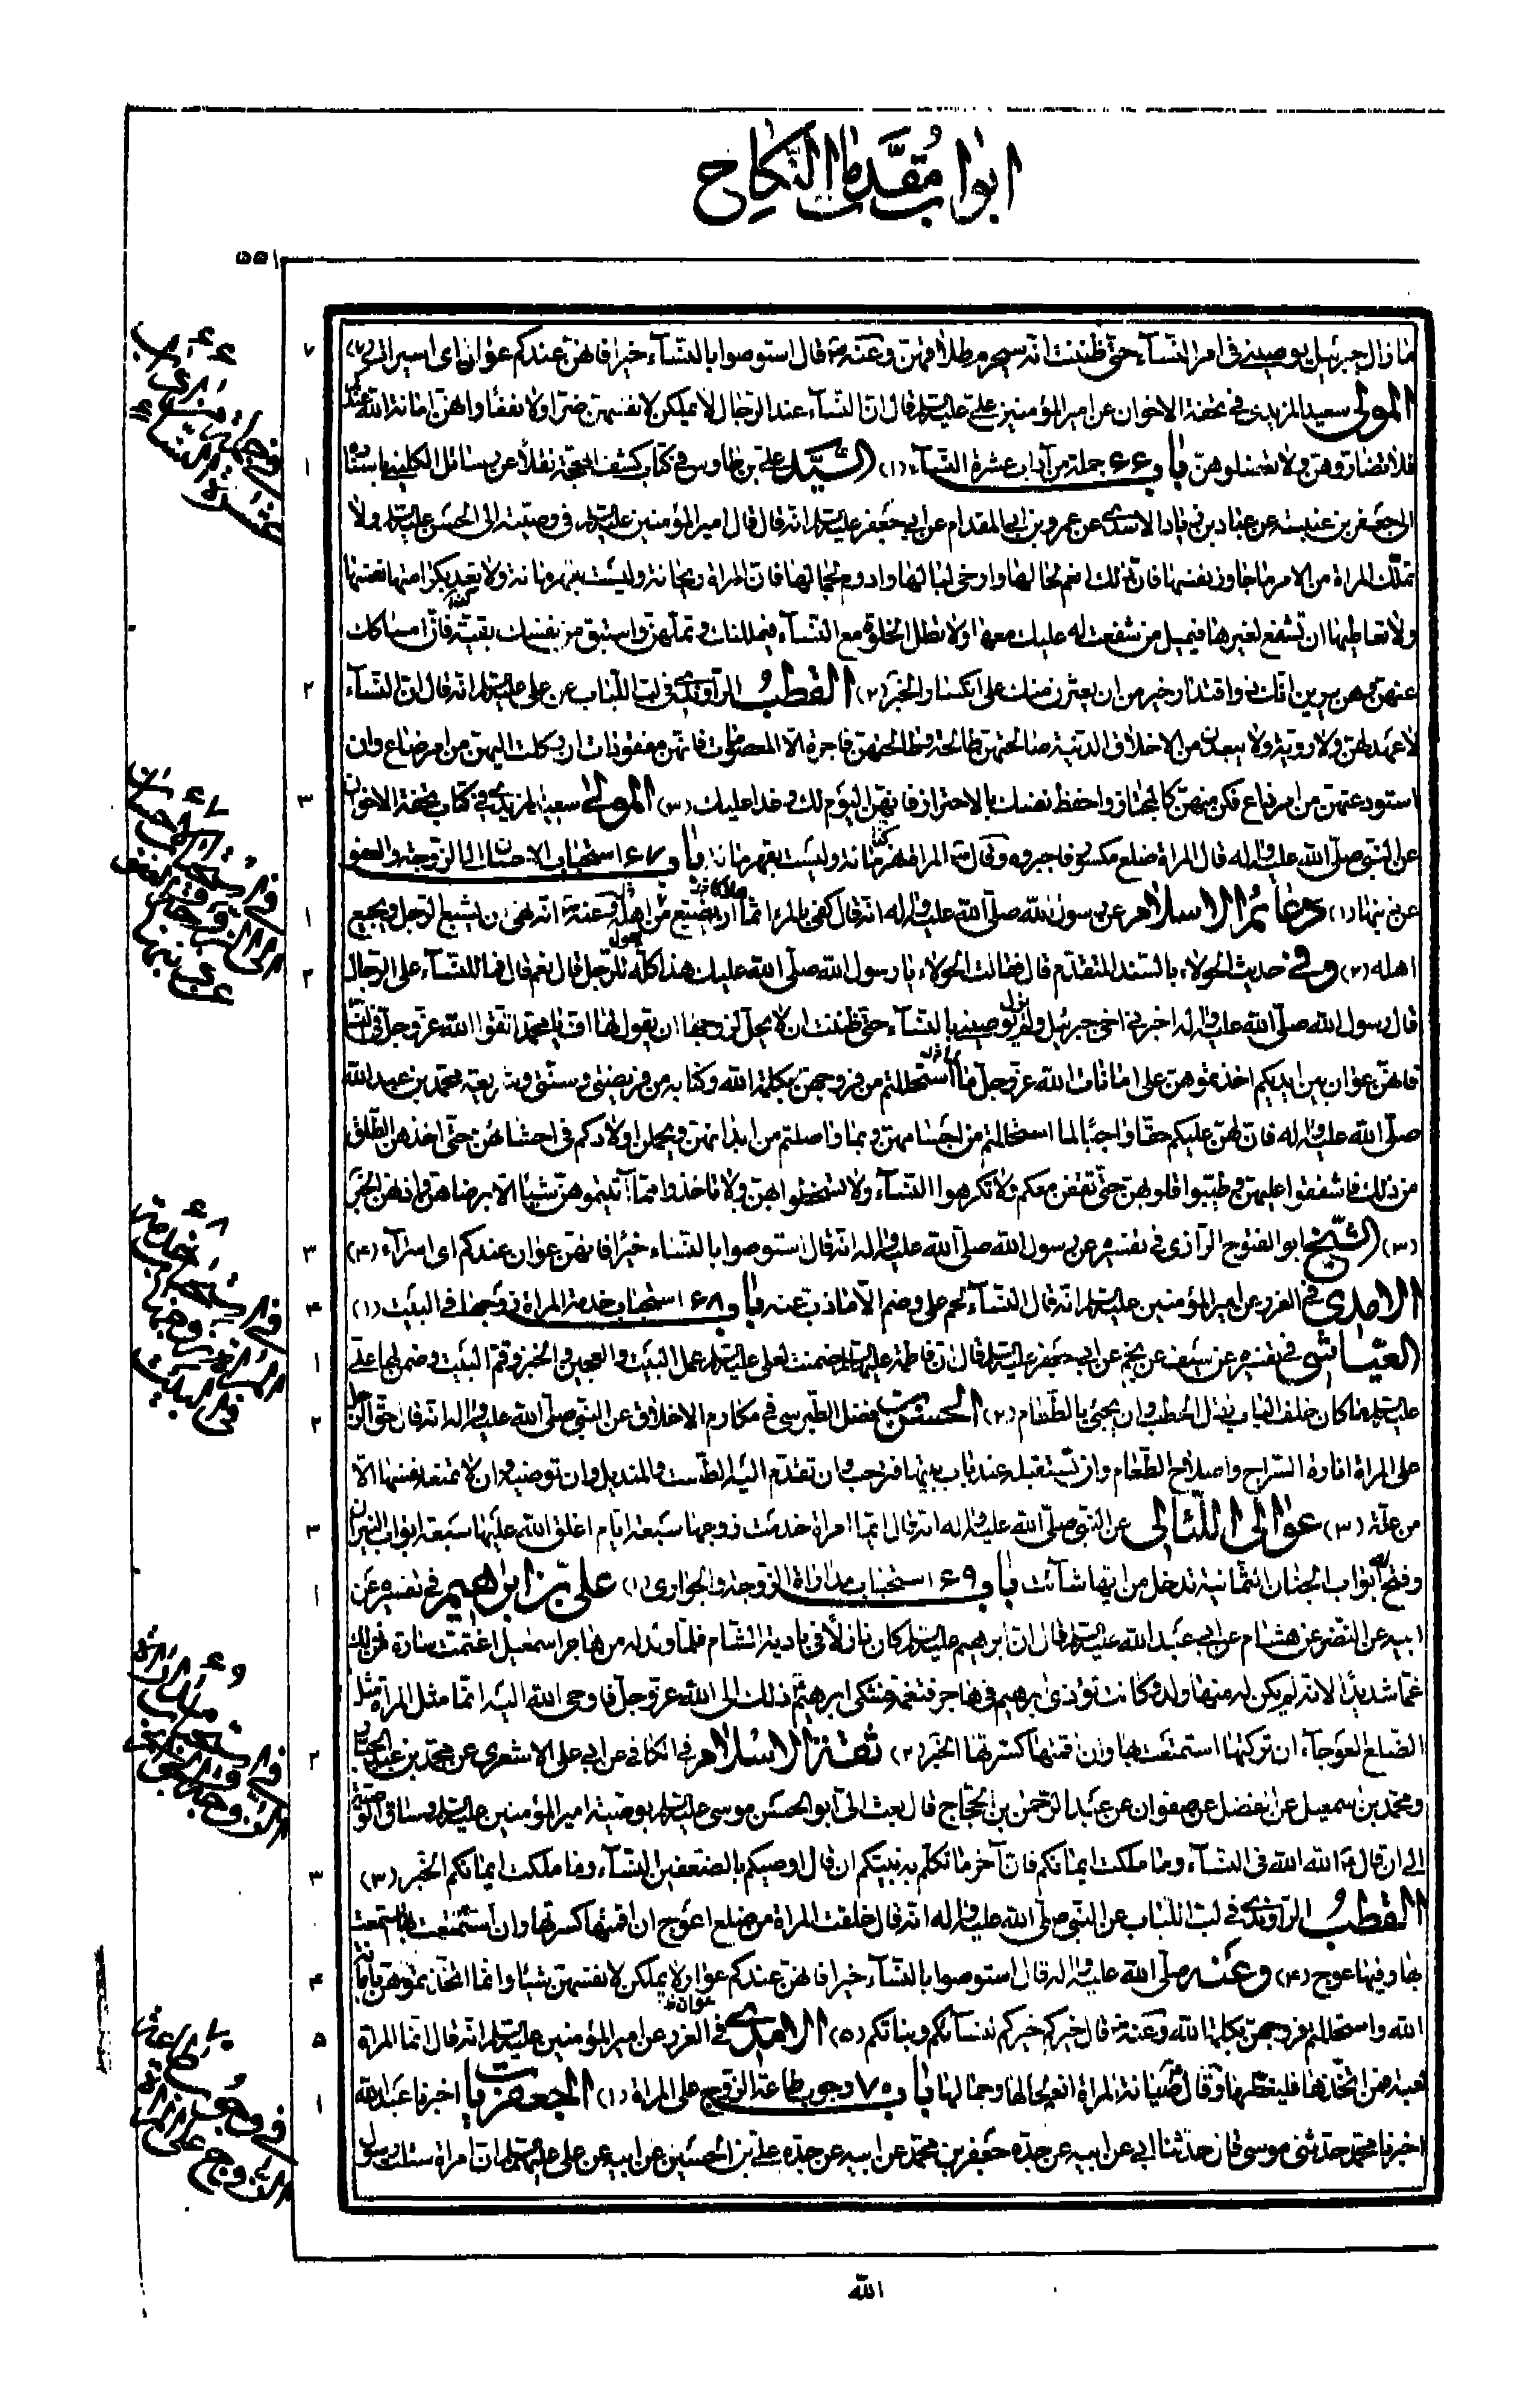 ابواب مقدمات النكاح
٥٥١
ما زال جبرئيل يوصيني في امر النساء حتى ظننت انه سيحرم طلاقهن وعنه ص قال استوصوا بالنساء خيرا فانهن عندكم عوان اى اسيرات (٧)
المولى سعيد المزيدى في تحفة الاخوان عن امير المؤمنين على عليه السلم قال ان النساء عند الرجال لا يملكن لانفسهن ضرا ولا نفعا وانهن امانة الله عندكم
فلا تضاروهن ولا تعضلوهن باب ٦٦ جملة من آداب عشرة النساء (١) السيد على بن طاوس في كتاب كشف المحجة نقلا عن رسائل الكليني باسناده
الى جعفر بن عنبسة عن عباد بن زياد الاسدى عن عمرو بن ابى المقدام عن ابى جعفر عليه السلم انه قال قال امير المؤمنين عليه السلم في وصيته الى الحسن عليه السلم ولا
تملك المراة من الامر ما جاوز نفسها فان ذلك انعم لحالها وارخى لبالها وادوم لجمالها فان المراة ريحانة وليست بقهرمانة ولا تعد بكرامتها نفسها
ولا تعاطيها ان تشفع لغيرها فيميل من شفعت له عليك معها ولا تطل الخلوة مع النساء فيمللنك وتملهن واستبق من نفسك بقية فان امساكك
عنهن وهن يرين انك ذو اقتدار خير من ان يعثرن منك على انكسار الخبر (٢) القطب الراوندى في لب اللباب عن على عليه السلم انه قال ان النساء
لا عهد لهن ولا روية ولا يبعدن من الاخلاق الدنية صالحتهن طالحة وطالحتهن فاجرة الا المعصومات فانهن مفقودات ان وكلت اليهن من امر ضاع وان
استودعتهن من امر ذاع فكن منهن كالمجتاز واحفظ نفسك بالاحتراز فانهن اليوم لك وغدا عليك (٣) المولى سعيد المزيدى في كتاب تحفة الاخوان
عن النبى صلى الله عليه واله قال المراة ضلع مكسور فاجبروه وقال ص المراة قهرمانة وليست بقهرمانة باب ٦٧ استحباب الاحسان الى الزوجة والعفو
عن ذنبها (١) دعائم الاسلام عن رسول الله صلى الله عليه واله انه قال كفى بالمرء اثما ان يضيع من اهله وعنه ص انه نهى ان يشبع الرجل ويجيع
اهله (٢) وفي حديث الحولاء بالسند المتقدم قال فقالت الحولاء يا رسول الله صلى الله عليك هذا كله للرجل قال نعم قال فما للنساء على الرجال
قال رسول الله صلى الله عليه واله اخبرنى اخى جبرئيل ولم يزل يوصيني بالنساء حتى ظننت ان لا يحل لزوجها ان يقول لها اف يا محمد اتقوا الله عز وجل في النساء
فانهن عوان بين ايديكم اخذتموهن على امانات الله عز وجل ما استحللتم من فروجهن بكلمة الله وكتابه من فريضة وسنة وشريعة محمد بن عبد الله
صلى الله عليه واله فان لهن عليكم حقا واجبا لما استحللتم من اجسامهن وبما واصلتم من ابدانهن ويحملن اولادكم في احشائهن حتى اخذهن الطلق
من ذلك فاشفقوا عليهن وطيبوا قلوبهن حتى يقفن معكم ولا تكرهوا النساء ولا تسخطوا بهن ولا تاخذوا مما آتيتموهن شيئا الا برضاهن واذنهن الخبر
(٣) الشيخ ابو الفتوح الرازى في تفسيره عن رسول الله صلى الله عليه واله انه قال استوصوا بالنساء خيرا فانهن عوان عندكم اى اسراء (٤)
الامدى في الغرر عن امير المؤمنين عليه السلم انه قال النساء لحم على وضم الا ما ذب عنه باب ٦٨ استحباب خدمة المراة زوجها في البيت (١)
العياشى في تفسيره عن سيف عن نجم عن ابى جعفر عليه السلم قال ان فاطمة عليها السلم ضمنت لعلى عليه السلم عمل البيت والعجين والخبز وقم البيت وضمن لها على
عليه السلم ما كان خلف الباب نقل الحطب وان يجئ بالطعام (٢) الحسن بن فضل الطبرسى في مكارم الاخلاق عن النبى صلى الله عليه واله انه قال حق الرجل
على المراة انارة السراج واصلاح الطعام وان تستقبله عند باب بيتها فترحب وان تقدم اليه الطست والمنديل وان توضيه وان لا تمنعه نفسها الا
من علة (٣) عوالى اللئالى عن النبى صلى الله عليه واله انه قال ايما امراة خدمت زوجها سبعة ايام اغلق الله عليها سبعة ابواب النيران
وفتح لها ابواب الجنان الثمانية تدخل من ايها شائت باب ٦٩ استحباب مداراة الزوجة والجوارى (١) على بن ابراهيم في تفسيره عن
ابيه عن النضر عن هشام عن ابى عبد الله عليه السلم قال ان ابرهيم عليه السلم كان نازلا في بادية الشام فلما ولد له من هاجر اسمعيل اغتمت سارة من ذلك
غما شديدا لانه لم يكن له منها ولد وكانت تؤذى ابرهيم في هاجر فتغمه فشكى ابرهيم ذلك الى الله عز وجل فاوحى الله اليه انما مثل المراة مثل
الضلع العوجاء ان تركتها استمتعت بها وان اقمتها كسرتها الخبر (٢) ثقة الاسلام في الكافى عن ابى على الاشعرى عن محمد بن عبد الجبار
ومحمد بن اسمعيل عن الفضل عن صفوان عن عبد الرحمن بن الحجاج قال بعث الى ابو الحسن موسى عليه السلم بوصية امير المؤمنين عليه السلم وساق الوصية
الى ان قال ع الله الله في النساء وما ملكت ايمانكم فان آخر ما تكلم به نبيكم ان قال اوصيكم بالضعيفين النساء وما ملكت ايمانكم الخبر (٣)
القطب الراوندى في لب اللباب عن النبى صلى الله عليه واله انه قال خلقت المراة من ضلع اعوج ان اقمتها كسرتها وان استمتعت بها استمتعت
بها وفيها عوج (٤) وعنه صلى الله عليه واله قال استوصوا بالنساء خيرا فانهن عندكم عوار لا يملكن لانفسهن شيئا وانما اتخذتموهن بامانة
الله واستحللتم فروجهن بكلمة الله وعنه ص قال خيركم خيركم لنسائكم وبناتكم (٥) الامدى في الغرر عن امير المؤمنين عليه السلم انه قال انما المراة
لعبة فمن اتخذها فليغطها وقال صيانة المراة انعم لحالها وجمالها باب ٧٠ وجوب طاعة الزوج على المراة (١) الجعفريات اخبرنا عبد الله
اخبرنا محمد حدثنى موسى قال حدثنا ابى عن ابيه عن جده جعفر بن محمد عن ابيه عن جده على بن الحسين عن ابيه عن على عليهم السلم ان امراة سئلت رسول
الله